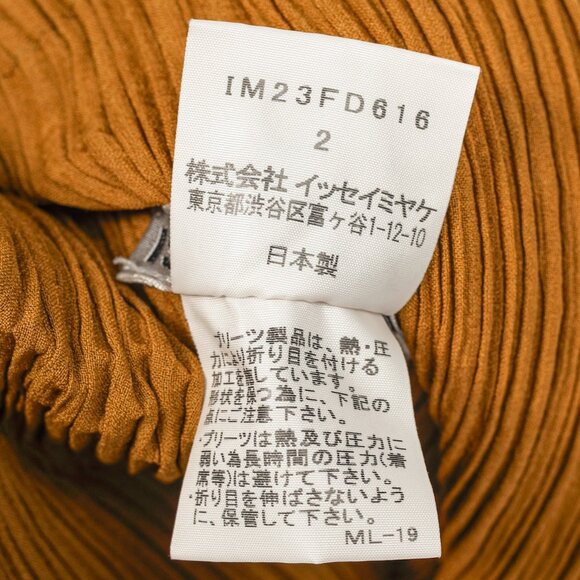 IM23FD616
2
株式会社 イッセイミヤケ
東京都渋谷区富ヶ谷1-12-10
日本製
プリーツ製品は、熱・圧
力により折り目を付ける
加工を施しています。
形状を保つ為に、下記の
点にご注意下さい。
・プリーツは熱及び圧力に
弱い為長時間の圧力(着
席等)は避けて下さい。
・折り目を伸ばさないよう
に、保管して下さい。
ML-19